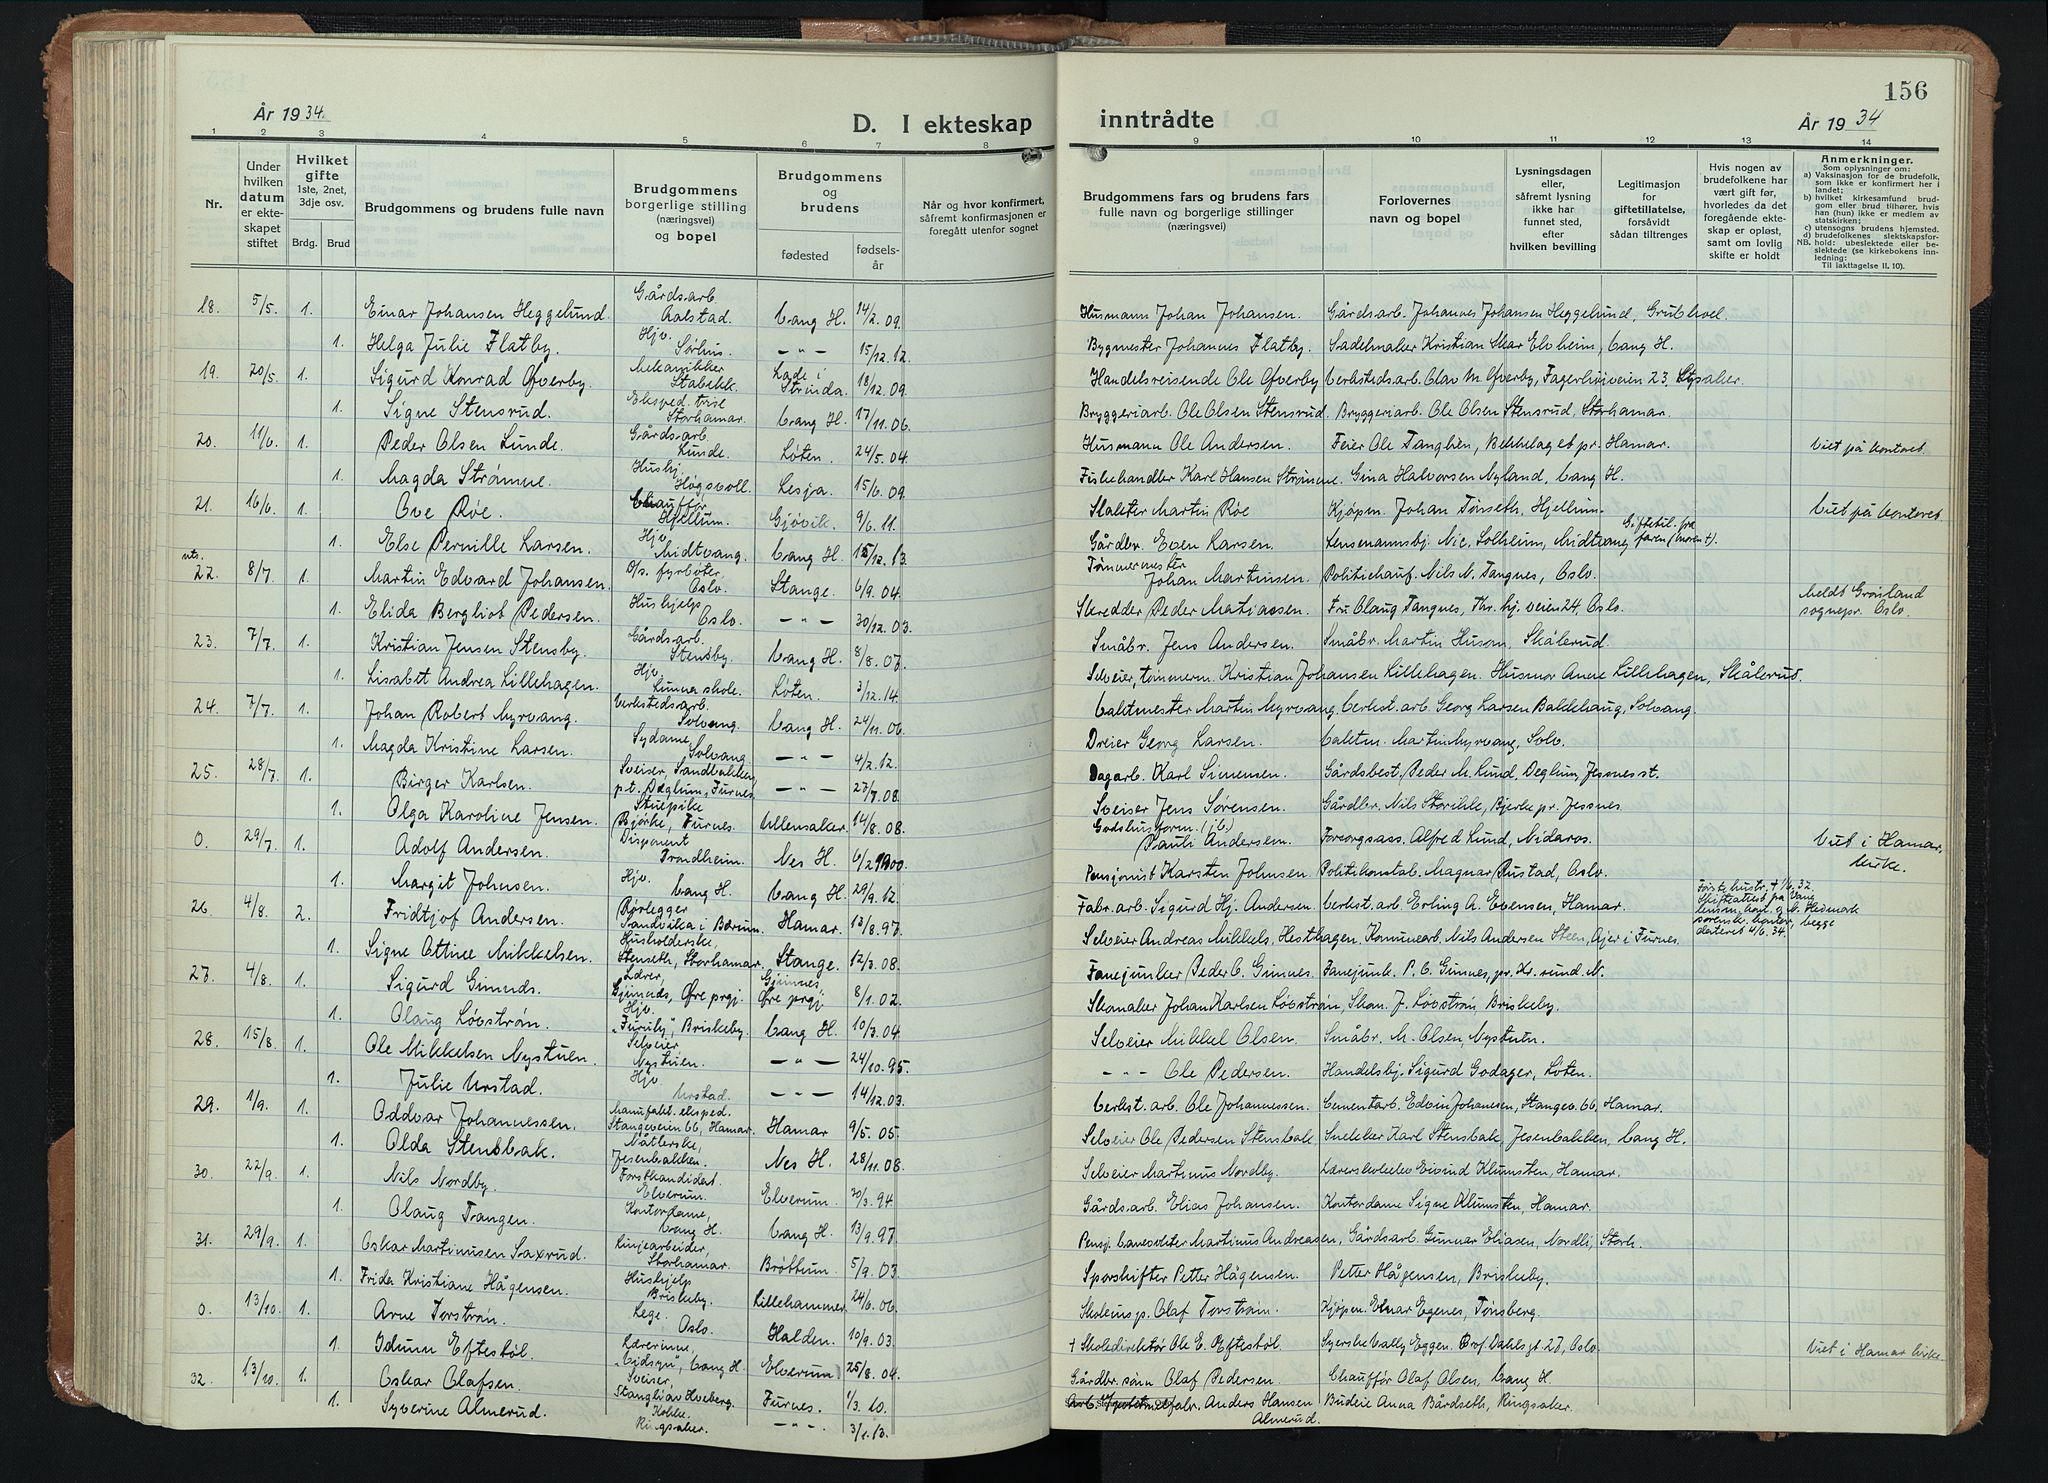 156
År 1934.
D. I ekteskap
inntrådte
År 1934
1 2 3 4 5 6 7 8 9 10 11 12 13 14
Nr.
Under hvilken datum er ekteskapet stiftet
Hvilket gifte
1ste, 2net, 3dje osv.
Brdg. Brud
Brudgommens og brudens fulle navn
Brudgommens borgerlige stilling (næringsvei) og bopel
Brudgommens og brudens
fødested
fødselsår
Når og hvor konfirmert, såfremt konfirmasjonen er foregått utenfor sognet
Brudgommens fars og brudens fars fulle navn og borgerlige stillinger (næringsvei)
Forlovernes navn og bopel
Lysningsdagen eller, såfremt lysning ikke har funnet sted, efter hvilken bevilling
Legitimasjon for giftetillatelse, forsåvidt sådan tiltrenges
Hvis nogen av brudefolkene har vært gift før, hvorledes da det foregående ekteskap er opløst, samt om lovlig skifte er holdt
Anmerkninger.
Som oplysninger om:
a) Vaksinasjon for de brudefolk, som ikke er konfirmert her i landet;
b) hvilket kirkesamfund brudgom eller brud tilhører, hvis han (hun) ikke er medlem av statskirken;
c) utensogns brudens hjemsted.
d) brudefolkenes slektskapsforhold: ubeslektede eller beslektede (se kirkebokens innledning:
NB. Til iakttagelse II. 10).
18. 5/5 1. Einar Johansen Heggelund. Gårdsarb. Aalstad. Vang H. 14/2. 09. Husmann Johan Johansen. Gårdsarb. Johannes Johansen Heggelund, Grubhoel.
1. Helga Julie Flatby. Hjv. Sørhus. — " — 15/12. 12. Bygmester Johannes Flatby. Sadelmaker Kristian Skar Elvheim, Vang H.
19. 20/5. 1. Sigurd Konrad Øfverby. Mekanikker Stabekk. Lade i Strinda. 18/12. 09. Handelsreisende Ole Øfverby Verkstedsarb. Olav M. Øfverby, Fagerhøiveien 23, Lysaker.
1. Signe Stensrud. Eksped. trise Storhamar. Vang H. 17/11. 06. Bryggeriarb. Ole Olsen Stensrud. Bryggeriarb. Ole Olsen Stensrud, Storhamar.
20. 11/6. 1. Peder Olsen Lunde. Gårdsarb. Lunde. Løten. 24/5. 04. Husmann Ole Andersen. Feier Ole Tanghen, Bekkelaget pr. Hamar. Viet på kontoret
1. Magda Strømne. Hushj. Høgsvoll. Lesja. 15/6. 09. Fiskehandler Karl Hansen Strømne. Gina Halvorsen Nyland, Vang H.
21. 16/6. 1. Ove Røe. Chauffør Hjellum. Gjøvik. 9/6. 11. Slakter Martin Røe Kjøpm. Johan Tønseth, Hjellum. Viet på kontoret
1. Else Pernille Larsen. Hjv. Midtvang. Vang H. 15/12. 13. Gårdbr. Even Larsen. Lensmannsbj. Nic. Solheim, Midtvang Giftetil. fra faren (moren †).
uts. 22. 8/7. 1. Martin Edvard Johansen. D/s. fyrbøter Oslo. Stange. 6/9. 04. Tømmermester Johan Martinsen. Politichauf. Nils N. Tangnes, Oslo.
1. Elida Bergliot Pedersen. Hushjelp Oslo. — " — 30/12. 03. Skredder Peder Matiassen. Fru Olaug Tangnes, Thr. hj. veien 24, Oslo. Meldt Grønland sognepr. Oslo.
23. 7/7. 1. Kristian Jensen Stensby. Gårdsarb. Stensby. Vang H. 8/8. 07. Småbr. Jens Andersen. Småbr. Martin Husom, Skålerud.
1. Lisabet Andrea Lillehagen. Hjv. Lunna skole. Løten. 3/12. 14. Selveier, tømmerm. Kristian Johansen Lillehagen. Husmor Anne Lillehagen, Skålerud.
24. 7/7. 1. Johan Robert Myrvang. Verkstedsarb. Solvang. Vang H. 24/11. 06. Vaktmester Martin Myrvang. Verkst. arb. Georg Larsen Baldehaug, Solvang.
1. Magda Kristine Larsen. Sydame, Solvang. — " — 4/2. 12. Dreier Georg Larsen. Vaktm. Martin Myrvang, Solv.
25. 28/7. 1. Birger Karlsen. Sveiser, Sandbakken, p.t. Deglum, Furnes. — " — 27/7. 08. Dagarb. Karl Simensen. Gårdsbest. Peder M. Lund, Deglum, Jesnes st.
1. Olga Karoline Jensen. Stuepike Bjørke, Furnes. Ullensaker. 14/8. 08. Sveiser Jens Sørensen. Gårdbr. Nils Storihle, Bjerke pr. Jessnes.
0. 29/7. 1. Adolf Andersen. Disponent Trondheim. Nes H. 6/2 1900. Godshusform. (j.b.) Pauli Andersen. Forsorgsass. Alfred Lund, Nidaros. Viet i Hamar kirke.
1. Margit Johnsen. Hjv. Vang H. Vang H. 29/9. 12. Pensjonist Karsten Johnsen Politikonstab. Magnar Rustad, Oslo.
26. 4/8. 2. Fridtjof Andersen. Rørlegger Sandvika i Bærum. Hamar. 13/8. 97. Fabr. arb. Sigurd Hj. Andersen Verkst. arb. Erling A. Evensen, Hamar. Første hustr. † 1/6. 32. Skifteattest på Vang lensm. kont. og N. Hedmark sorensk. kontor, begge datert 4/6. 34.
1. Signe Otine Mikkelsen. Husholderske, Stenseth, Storhamar. Stange. 12/3. 08. Selveier Andreas Mikkels. Hesthagen, Kommunearb. Nils Andersen Steen, Ajer i Furnes.
27. 4/8. 1. Sigurd Gimnes. Lærer, Gjimnes, Øre prgj. Gjimnes, Øre prgj. 8/1. 02. Fanejunker Peder C. Gimnes. Fanejunk. P. C. Gimnes, pr. Kr.sund N.
1. Olaug Løvstrøn. Hjv. "Furuly", Briskeby. Vang H. 10/3. 04. Skomaker Johan Karlsen Løvstrøn, Skom. J. Løvstrøn, Briskeby.
28. 15/8. 1. Ole Mikkelsen Nystuen. Selveier Nystuen. — " — 24/10. 95. Selveier Mikkel Olsen. Småbr. M. Olsen, Nystuen.
1. Julie Urstad. Hjv. Urstad. — " — 14/12. 03. — " — Ole Pedersen. Handelsbj. Sigurd Godager, Løten.
29. 1/9. 1. Oddvar Johannessen. Manufakt. eksped. Stangeveien 66, Hamar. Hamar 9/5. 05. Verkst. arb. Ole Johannessen. Cementarb. Edvin Johansen, Stangev. 66, Hamar.
1. Olda Stensbak. Nåtlerske, Jesenbakken. Nes H. 28/11. 08. Selveier Ole Pedersen Stensbak Snekker Karl Stensbak, Jesenbakken, Vang H.
30. 22/9. 1. Nils Nordby. Forstkandidat. Elverum. Elverum. 20/3. 94. Selveier Martinus Nordby. Lærerskoleelev Eivind Klumsten, Hamar.
1. Olaug Tangen. Kontordame, Vang H. Vang H. 13/9. 97. Gårdsarb. Elias Johansen. Kontordame Signe Klumsten, Hamar.
31. 29/9. 1. Oskar Martinusen Saxrud. Linjearbeider, Storhamar. Brøttum. 5/9. 03. Pensj. banevokter Martinus Andreasen, Gårdsarb. Gunnar Eliasen, Nordli, Storh.
1. Frida Kristiane Hågensen. Hushjelp Briskeby. Lillehammer 24/6. 06. Sporskifter Petter Hågensen. Petter Hågensen, Briskeby.
0. 13/10. 1. Arne Torstrøn. Lege. Oslo. Halden. 10/9. 03. Skoleinsp. Olaf Torstrøm. Kjøpm. Einar Egenes, Tønsberg.
1. Idunn Eftestøl. Lærerinne, "Vidsyn", Vang H. Elverum 25/8. 04. † Skoledirektør Ole E. Eftestøl. Syerske Vally Eggen. Prof. Dahlsgt 27, Oslo Viet i Hamar kirke.
32. 13/10. 1. Oskar Olafsen. Sveiser, Stangli av Hveberg. Furnes. 1/3. 10. Gårdbr. sønn Olaf Pedersen. Chauffør Olaf Olsen, Vang H.
1. Syverine Almerud. Kokke. Ringsaker. — " — 3/1. 13. Arb. fabr. Anders Hansen Almerud. Budeie Anna Bårdseth, Ringsaker.